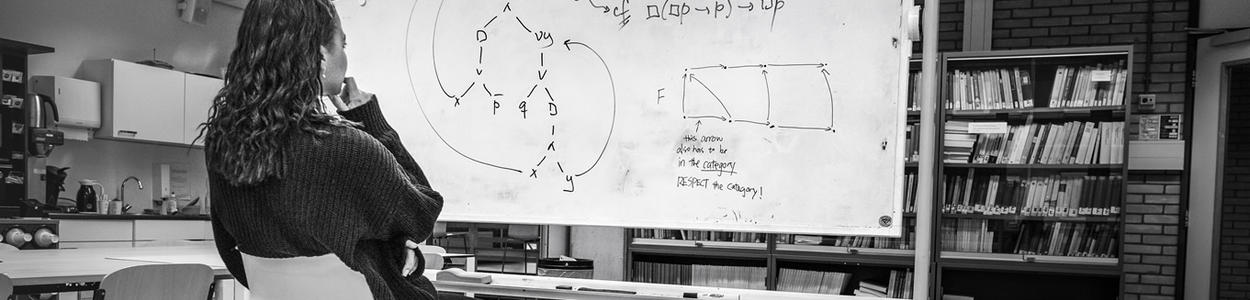 cf □(□p→p)→□p
D
νy
∨
∨
x
p̄
q
D
∧
x
y
F
this arrow
also has to be
in the category
RESPECT the category!